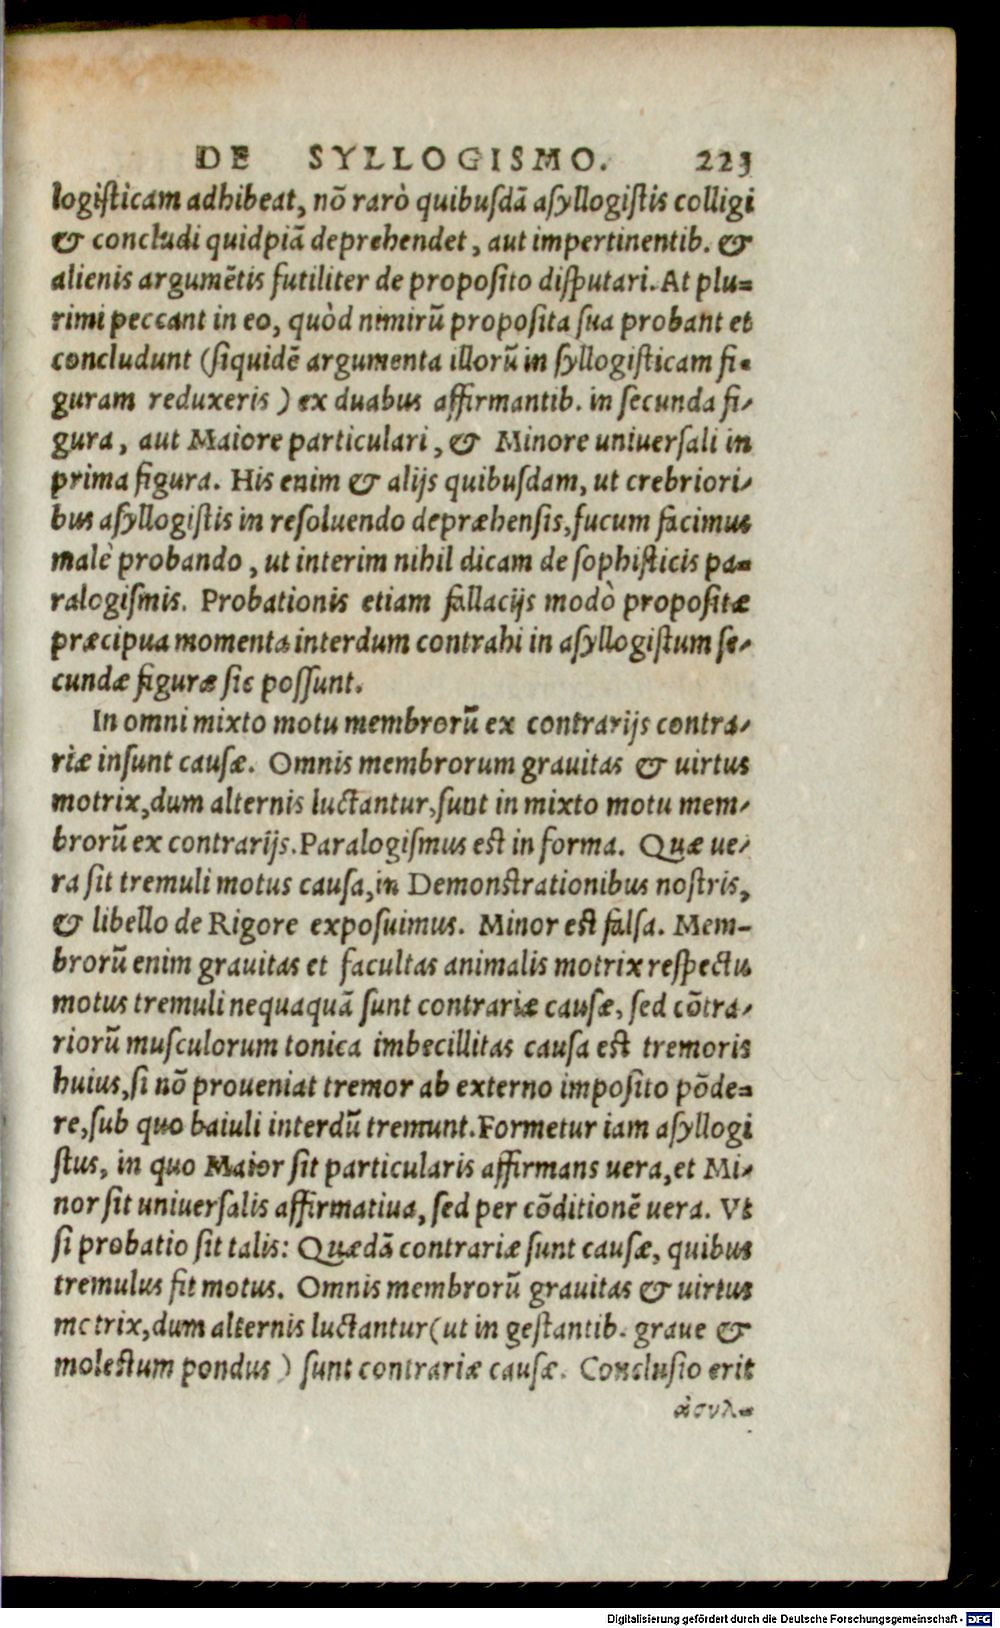 DE SYLLOGISMO. 223
logisticam adhibeat, nõ rarò quibusdã asyllogistis colligi
& concludi quidpiã deprehendet, aut impertinentib. &
alienis argumẽtis futiliter de proposito disputari. At plu=
rimi peccant in eo, quòd nimirũ proposita sua probant et
concludunt (siquidẽ argumenta illorũ in syllogisticam fi=
guram reduxeris) ex duabus affirmantib. in secunda fi-
gura, aut Maiore particulari, & Minore uniuersali in
prima figura. His enim & alijs quibusdam, ut crebriori-
bus asyllogistis in resoluendo depræhensis, fucum facimus
malè probando, ut interim nihil dicam de sophisticis pa=
ralogismis. Probationis etiam fallacijs modò propositæ
præcipua momenta interdum contrahi in asyllogistum se-
cundæ figuræ sic possunt.
In omni mixto motu membrorũ ex contrarijs contra-
riæ insunt causæ. Omnis membrorum grauitas & uirtus
motrix, dum alternis luctantur, sunt in mixto motu mem-
brorũ ex contrarijs. Paralogismus est in forma. Quæ ue-
ra sit tremuli motus causa, in Demonstrationibus nostris,
& libello de Rigore exposuimus. Minor est falsa. Mem-
brorũ enim grauitas et facultas animalis motrix respectu
motus tremuli nequaquã sunt contrariæ causæ, sed cõtra-
riorũ musculorum tonica imbecillitas causa est tremoris
huius, si nõ proueniat tremor ab externo imposito põde=
re, sub quo baiuli interdũ tremunt. Formetur iam asyllogi
stus, in quo Maior sit particularis affirmans uera, et Mi-
nor sit uniuersalis affirmatiua, sed per cõditionẽ uera. Vt
si probatio sit talis: Quædã contrariæ sunt causæ, quibus
tremulus fit motus. Omnis membrorũ grauitas & uirtus
motrix, dum alternis luctantur (ut in gestantib. graue &
molestum pondus) sunt contrariæ causæ. Conclusio erit
ἀσυλ=
Digitalisierung gefördert durch die Deutsche Forschungsgemeinschaft - DFG